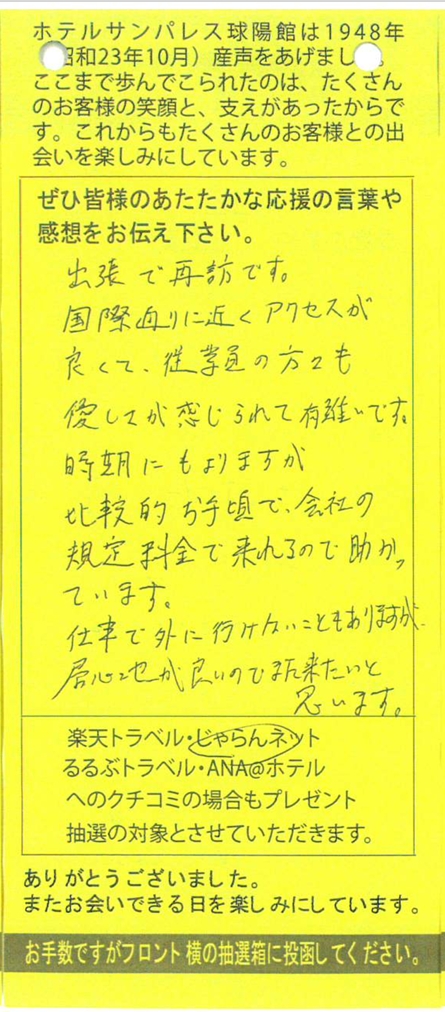 ホテルサンパレス球陽館は1948年
昭和23年10月）産声をあげまし。
ここまで歩んでこられたのは、たくさん
のお客様の笑顔と、支えがあったからで
す。これからもたくさんのお客様との出
会いを楽しみにしています。
ぜひ皆様のあたたかな応援の言葉や
感想をお伝え下さい。
出張で再訪です。
国際通りに近くアクセスが
良くて、従業員の方々も
優しさが感じられて有難いです。
時期にもよりますが
比較的お手頃で、会社の
規定料金で来れるので助かっ
ています。
仕事で外に行けないこともありますが、
居心地が良いのでまた来たいと
思います。
楽天トラベル・じゃらんネット
るるぶトラベル・ANA@ホテル
へのクチコミの場合もプレゼント
抽選の対象とさせていただきます。
ありがとうございました。
またお会いできる日を楽しみにしています。
お手数ですがフロント横の抽選箱に投函してください。